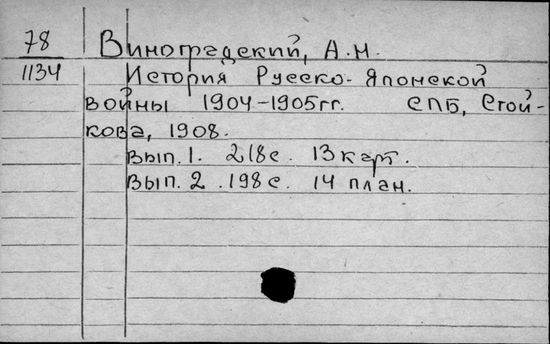 78 Виноградский, А.Н.
1134 История Русско-Японской
войны 1904-1905гг. СПБ, Стой-
кова, 1908.
Вып. 1. 218с. 13 карт.
Вып. 2. 198с. 14 план.